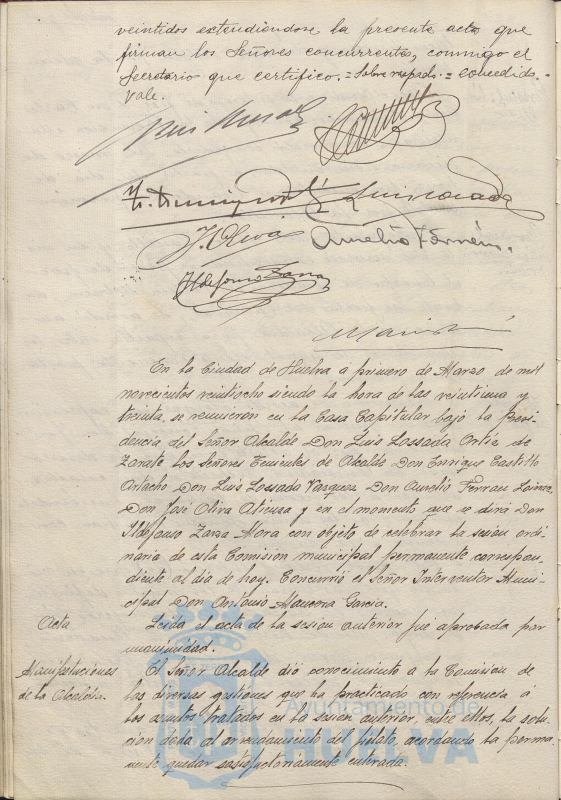 veintidos extendiéndose la presente acta que
firman los Señores concurrentes, conmigo el
Secretario que certifico. = Sobre raspado = concedido =
vale.
J. Oliva
Aurelio Ferrán.
Ildefonso Zarza
En la Ciudad de Huelva a primero de Marzo de mil
novecientos veintiocho siendo la hora de las veintiuna y
treinta, se reunieron en la Casa Capitular bajo la Presi-
dencia del Señor Alcalde Don Luis Lossada Ortiz de
Zarate los Señores Tenientes de Alcalde Don Enrique Castillo
Don Luis Lossada Vazquez Don Aurelio Ferran
Don José Oliva Atienza y en el momento que se dirá Don
Ildefonso Zarza Mora con objeto de celebrar la sesion ordi-
naria de esta Comision municipal permanente correspon-
diente al dia de hoy. Concurrió el Señor Interventor Muni-
cipal Don Antonio Mancera Garcia.
Acta
Leida el acta de la sesion anterior fué aprobada por
unanimidad.
Manifestaciones
de la Alcaldia.
El Señor Alcalde dió conocimiento a la Comision de
las diversas gestiones que ha practicado con referencia á
los asuntos tratados en la sesion anterior, entre ellos, la solu-
cion dada al arrendamiento del acordando la perma-
nente quedar satisfactoriamente enterada.
Ayuntamiento de
HUELVA